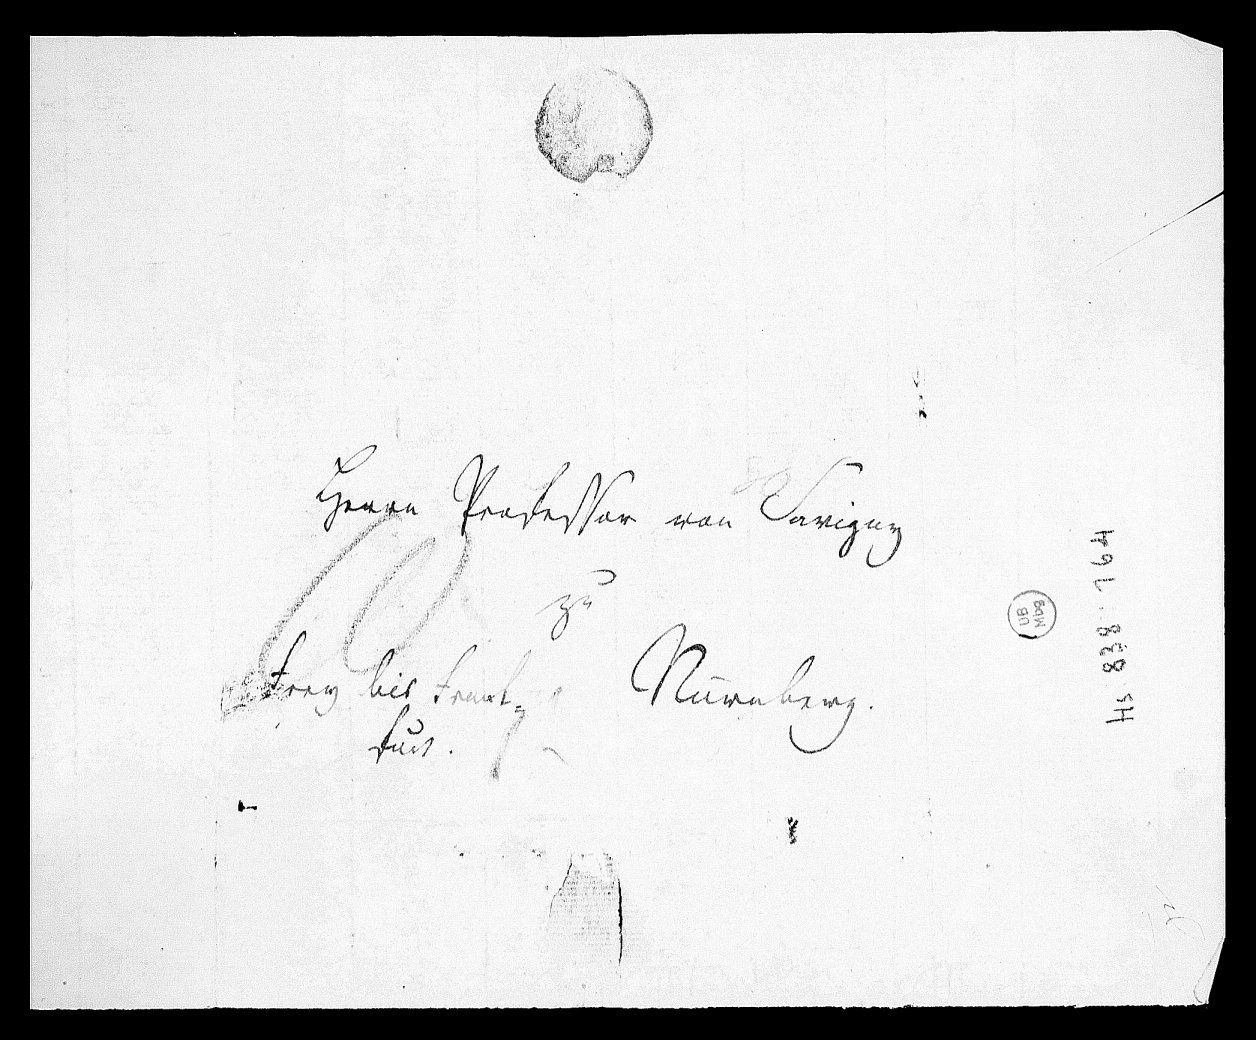 Herrn Professor von Savigny
zu
Nürnberg.
frey bis Frank-
furt.
UB
Mbg
Hs 838: 764